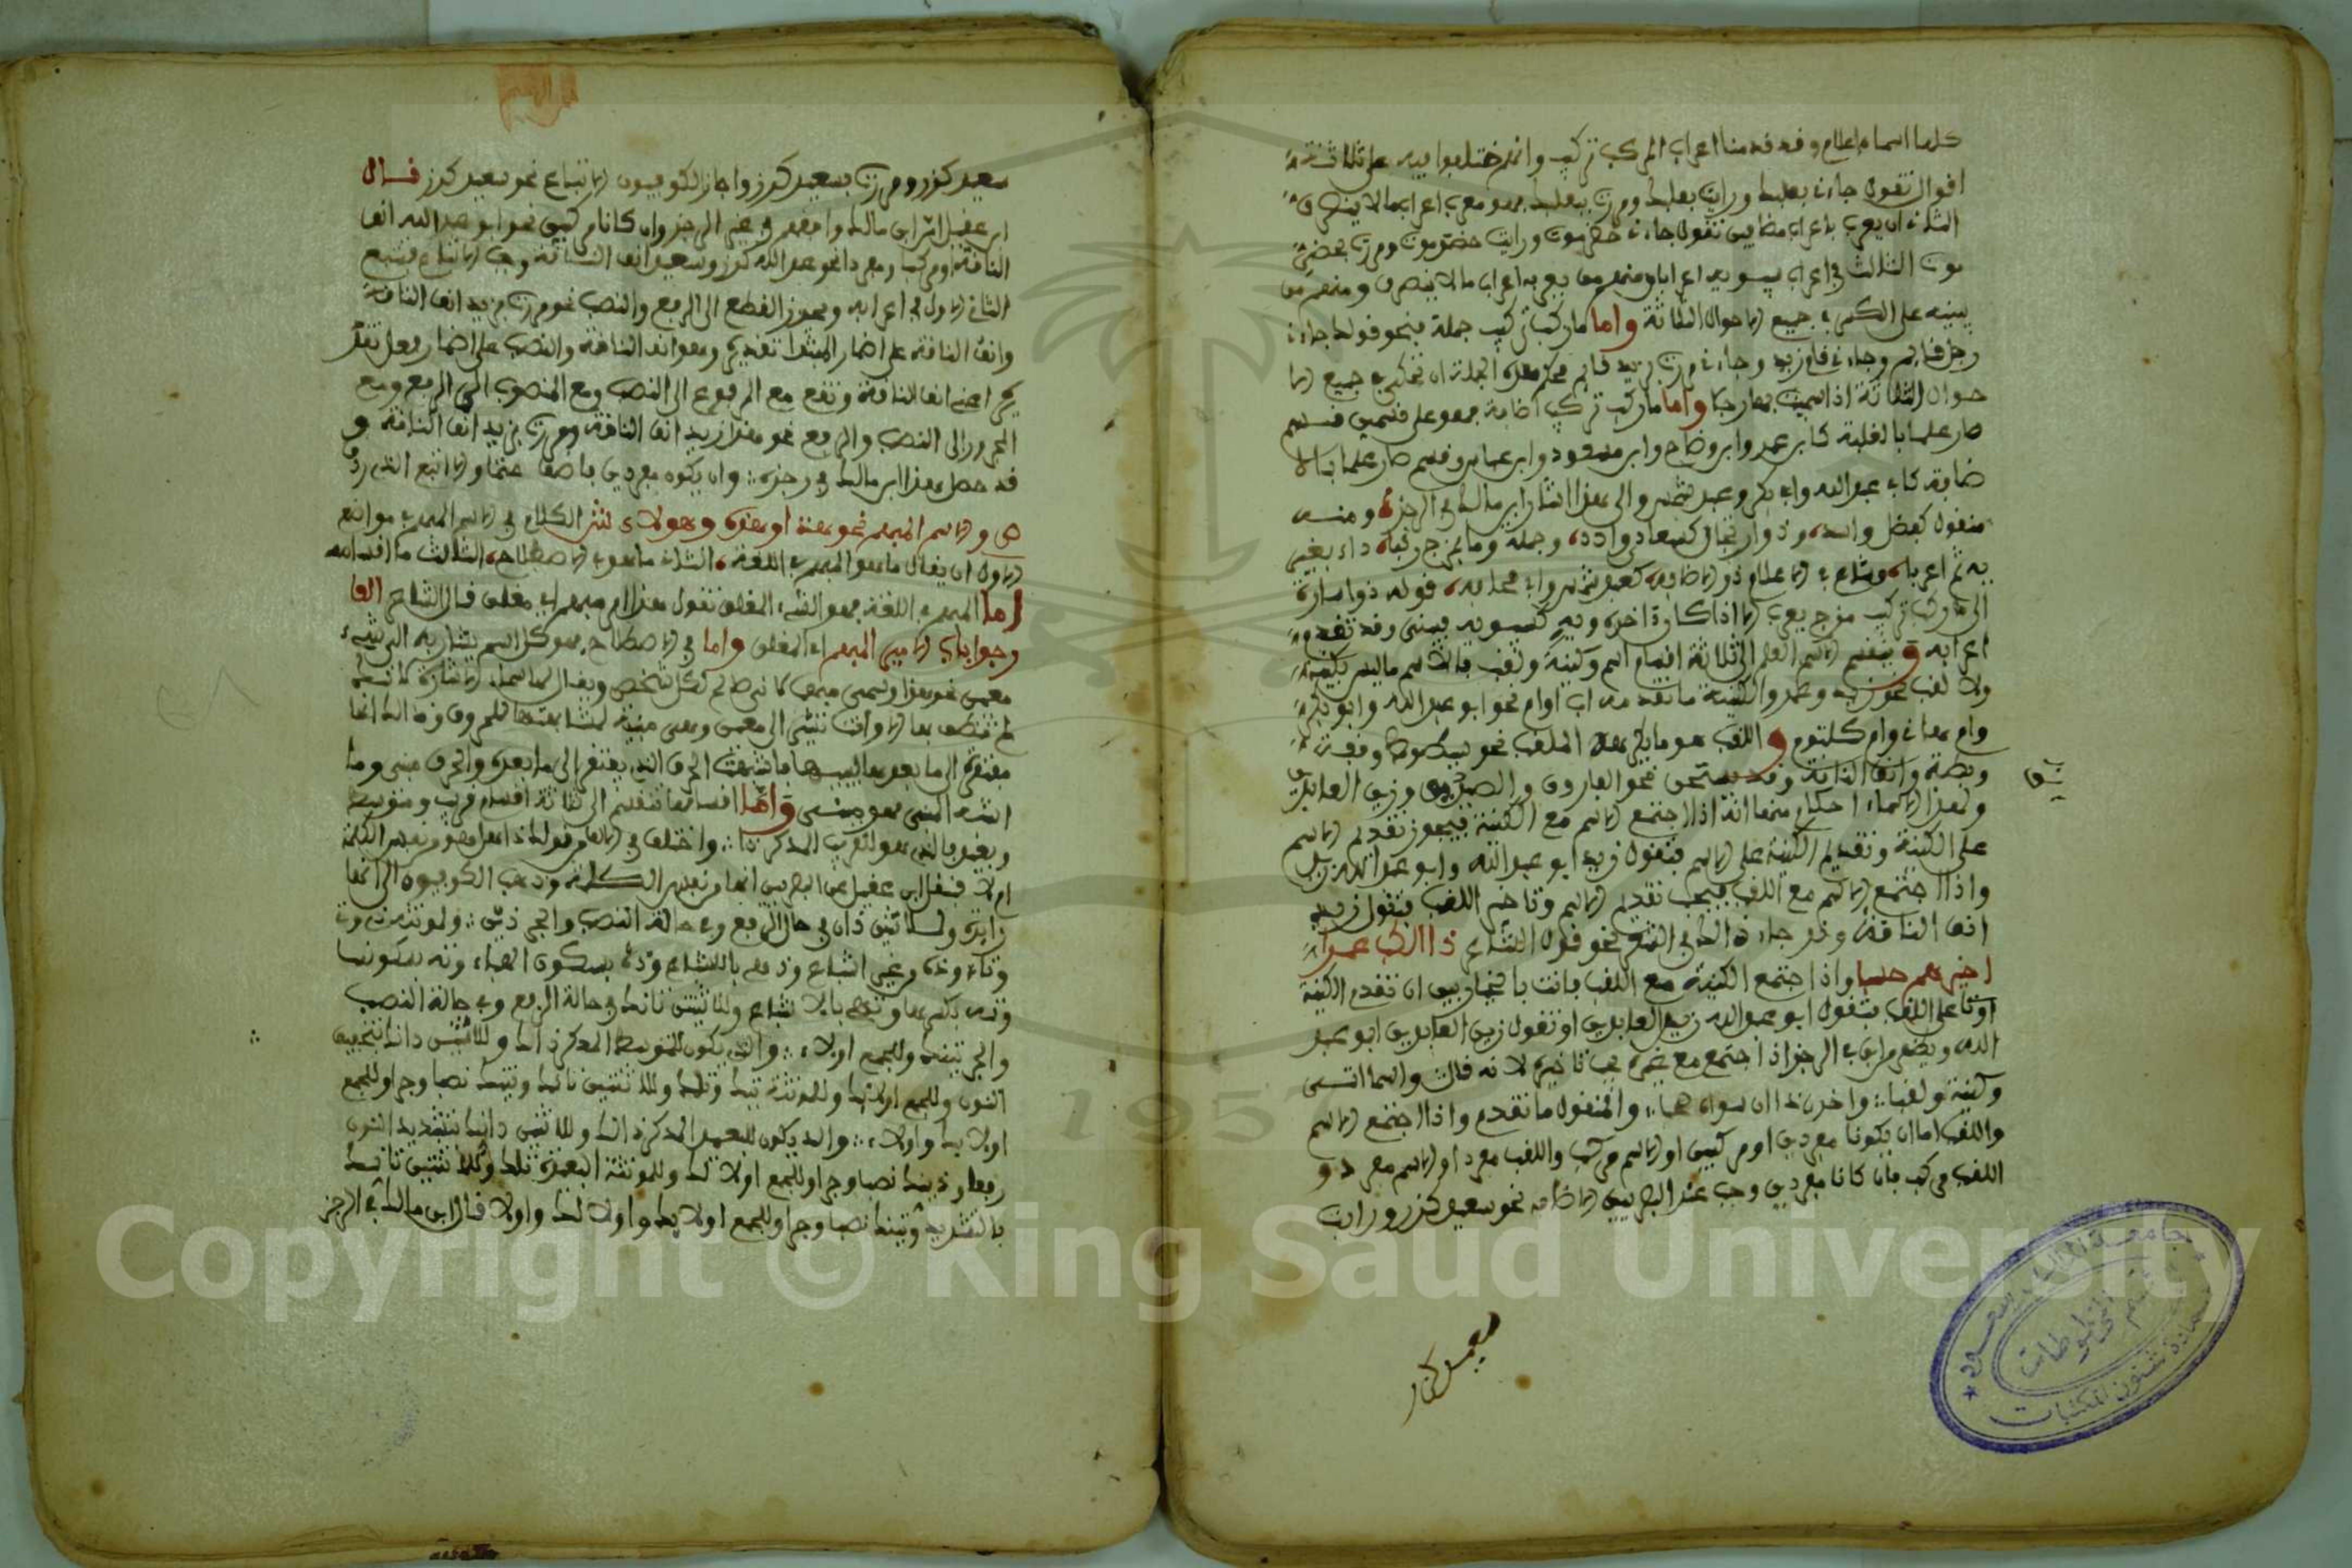 كلها اسماء اعلام وقد قدمنا اعراب المركب تركيب وانهم ختلفوا فيه على ثلاثة
اقوال تقول جاءني بعلبك ورايت بعلبك ومررت ببعلبك فهو معرب اعراب ما لا ينصرف
الثاني ان يعرب باعراب متضايفين تقول جاءني حضرموت ورايت حضرموت ومررت بحضر
موت الثالث في اعراب سيبويه اعرابان منهم من يعربه اعراب ما لا ينصرف ومنهم من
يبنيه على الكسر في جميع الاحوال الثلاثة واما ما ركب تركيب جملة فنحو قولك جاءني
رجل قايم وجاءني قام زيد وجاءني ومررت بزيد قايم فحكم هذه الجملة ان تحكى في جميع الا
حوال الثلاثة اذا سميت بها رجلا واما ما ركب تركيب اضافة فهو على قسمين قسم
صار علما بالغلبة كابن عمر وابن وضاح وابن مسعود وابن عباس وقسم صار علما بالا
ضافة كابي عبد الله وابي بكر وعبد شمس والى هذا اشار ابن مالك في الرجز ومنه
منقول كفضل واسد وذو ارتجال كسعاد وادد وجملة وما بمزج ركبا ذا ان بغير
ويه تم اعربا وشاع في الاعلام ذو الاضافة كعبد شمس وابي قحافة قوله ذا اشارة
الى ما ركب تركيب مزج يعرب الا اذا كان اخره ويه كسيبويه فيبنى وقد تقدم
اعرابه وينقسم الاسم العلم الى ثلاثة اقسام اسم وكنية ولقب فالاسم ما ليس بكنية
ولا لقب نحو زيد وعمرو والكنية ما تقدمه اب او ام نحو ابو عبد الله وابو بكر
وام هانى وام كلثوم واللقب هو ما يكره الملقب نحو بطة وقفة
وبطة وانف الناقة وقد يستحق نحو الفاروق والصديق وزين العابدين
ولهذا الاسماء احكام منها انه اذا اجتمع الاسم مع الكنية فيجوز تقديم الاسم
على الكنية وتقديم الكنية على الاسم فتقول زيد ابو عبد الله وابو عبد الله زيد
واذا اجتمع الاسم مع اللقب فيجب تقديم الاسم وتاخير اللقب فتقول زيد
انف الناقة وقد جاء ذلك في الشعر نحو قول الشاعر ذا الكلب عمرا
خيرهم حسبا واذا اجتمع الكنية مع اللقب فانت بالخيار بين ان تقدم الكنية
على اللقب فتقول ابو عبد الله زين العابدين او تقول زين العابدين ابو عبد
الله ويظهر من ابن في الرجز اذا اجتمع مع غيره يجب تاخيره لانه قال واسما اتى
وكنية ولقبا واخرن ذا ان سواه صحبا والمنقول ما تقدم واذا اجتمع الاسم
واللقب اما ان يكونا مفردين او مركبين او الاسم مركب واللقب مفرد او الاسم مفرد و
اللقب مركب فان كانا مفردين وجب عند البصريين الاضافة نحو سعيد كرز ورايت
سعيد كرز ومررت بسعيد كرز واجاز الكوفيون الاتباع نحو سعيد كرز قال
ابن عقيل اثر ابن مالك وان كانا مركبين نحو ابو عبد الله انف
الناقة او مركب ومفرد نحو عبد الله كرز وسعيد انف الناقة وجب الاتباع فتتبع
الثاني الاول في اعرابه ويجوز القطع الى الرفع والنصب نحو مررت بزيد انف الناقة
وانف الناقة على اضمار المبتدا تقديره هو انف الناقة والنصب على اضمار فعل تقد
يره اعني انف الناقة وتقطع مع المرفوع الى النصب ومع المنصوب الى الرفع ومع
المجرور الى النصب والرفع نحو هذا زيد انف الناقة ومررت بزيد انف الناقة و
قد حصل هذا ابن مالك في رجزه وان يكونا مفردين فاضف حتما والا اتبع الذي ردف
ص والاسم المبهم نحو هذا وهذه وهؤلاء ش الكلام في الاسم المبهم في مواضع
الاول ان يقال ما هو المبهم في اللغة الثاني ما هو في الاصطلاح الثالث ما اقسامه
اما المبهم في اللغة فهو الشيء المغلق تقول هذا امر مبهم اي مغلق قال الشاعر الفا
رجوا باب الامير المبهم اي المغلق واما في الاصطلاح فهو كل اسم يشار به الى شيء
معين نحو هذا وسمي مبهما
لم تنطق بها الا وانت تشير الى معين وهي مبنية لشبهها بالحروف وذلك انها
مفتقرة الى ما بعدها لبيانها فاشبهت الحرف الذي يفتقر الى ما بعده والحرف مبني وما
اشبه المبني فهو مبني واما اقسامها فتنقسم الى ثلاثة اقسام قريب ومتوسط
وبعيد فالذي هو للقريب المذكر ذا واختلف في الالف من قولك ذا هل هو من نفس الكلمة
ام لا فنقل ابن عقيل عن البصريين انها من نفس الكلمة وذهب الكوفيون الى انها
زايدة وللاثنين ذان في حال الرفع وفي حالة النصب والجر ذين وللمؤنث تي وتا
وذه وغير اشباع وذهي بالاشباع وذه بسكون الهاء وته بسكونها
وته بكسرها وتهي بالاشباع وللاثنين تان في حالة الرفع وفي حالة النصب
والجر تين وللجمع اولاء والذي يكون للمتوسط المذكر ذاك وللاثنين ذانك بتخفيف
النون وللجمع اولائك وللمؤنثة تيك وتلك وللاثنتين تانك وتينك نصبا وجرا وللجمع
اولايك واولاء والذي يكون للبعيد المذكر ذلك وللاثنين ذانك بتشديد النون
رفعا وذينك نصبا وجرا وللجمع اولالك وللمؤنثة البعيدة تلك وللاثنتين تانك
بالتشديد وتينك نصبا وجرا وللجمع اولايك واولالك واولا قال ابن مالك في الرجز
سعيد كرز
جامعة الملك سعود
قسم المخطوطات
عمادة شئون المكتبات
1957
Copyright © King Saud University